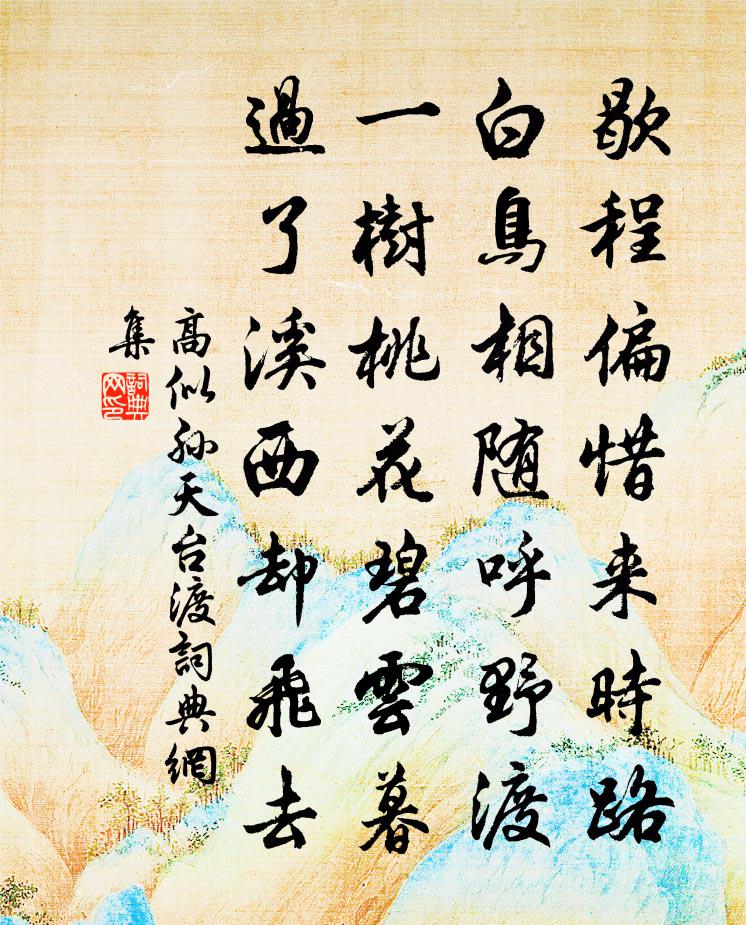 歇程偏惜来時路
白鳥相随呼野渡
一樹桃花碧雲暮
過了溪西却飛去
高似孙天台渡詞典網
集
詞典網印